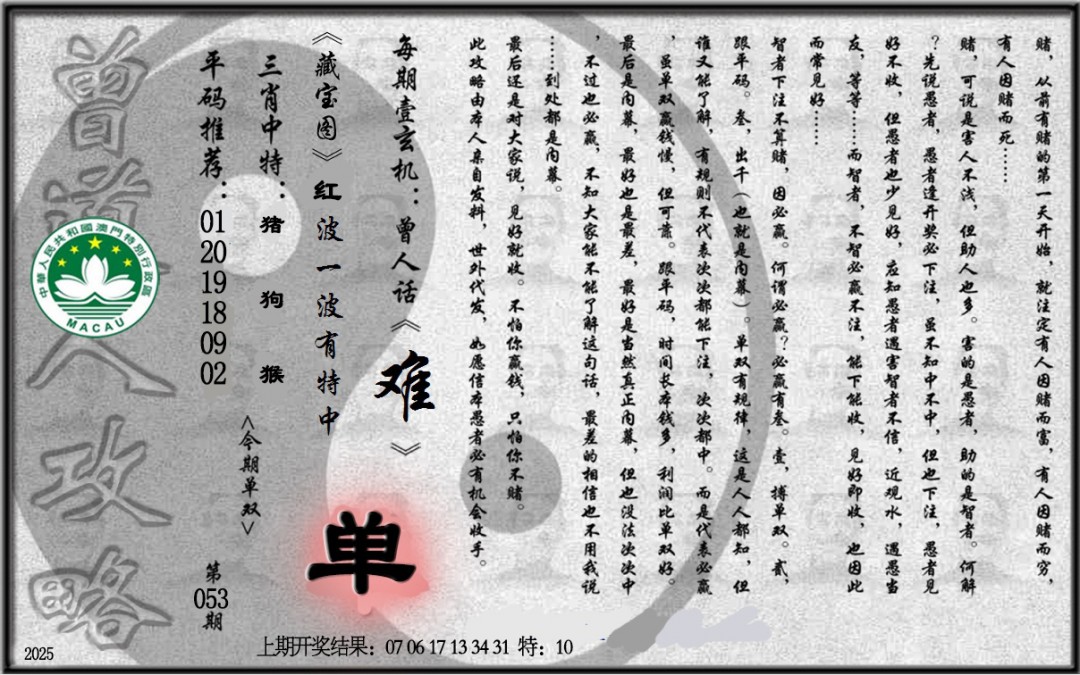 赌，从前有赌的第一天开始，就注定有人因赌而富，有人因赌而穷，
有人因赌而死……
赌，可说是害人不浅，但助人也多。害的是愚者，助的是智者。何解
？先说愚者，愚者逢开奖必下注，虽不知中不中，但也下注，愚者见
好不收，但愚者也少见好，应知愚者遇害智者不信，近观水，遇愚当
友，等等……而智者，不智必赢不注，能下能收，见好即收，也因此
而常见好……
智者下注不算赌，因必赢。何谓必赢？必赢有叁。壹，搏单双。贰，
跟平码。叁，出千（也就是内幕）。单双有规律，这是人人都知，但
谁又能了解，有规则不代表次次都能下注，次次都中。而是代表必赢
，虽单双赢钱慢，但可靠。跟平码，时间长本钱多，利润比单双好。
最后是内幕，最好也是最差，最好是当然真正内幕，但也没法次次中
，不过也必赢，不知大家能不能了解这句话，最差的相信也不用我说
……到处都是内幕。
最后还是对大家说，见好就收。不怕你赢钱，只怕你不赌。
此攻略由本人亲自发料，世外代发，如愿信本愚者必有机会收手。
每期壹玄机：曾人话《难》
《藏宝图》红波一波有特中
三肖中特：猪 狗 猴
平码推荐：01 20 19 18 09 02
<今期单双>
单
第053期
曾道人攻略
中華人民共和國澳門特別行政區
MACAU
上期开奖结果：07 06 17 13 34 31 特：10
2025